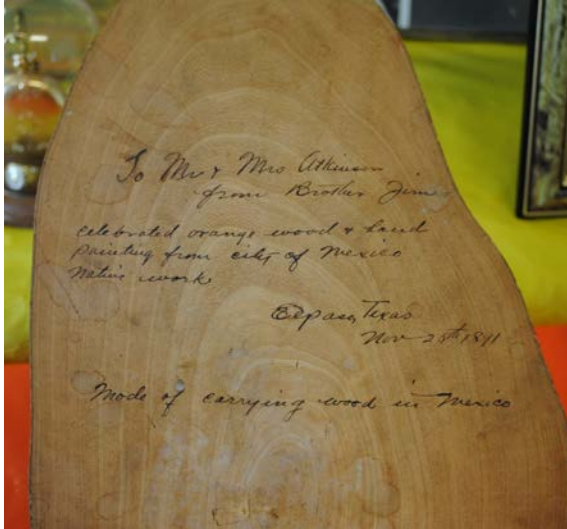 To Mr & Mrs Atkinson
from Brother Jim
celebrated orange wood & hand
painting from city of Mexico
Native work
Elpaso, Texas
Nov 28th 1891
Mode of carrying wood in Mexico